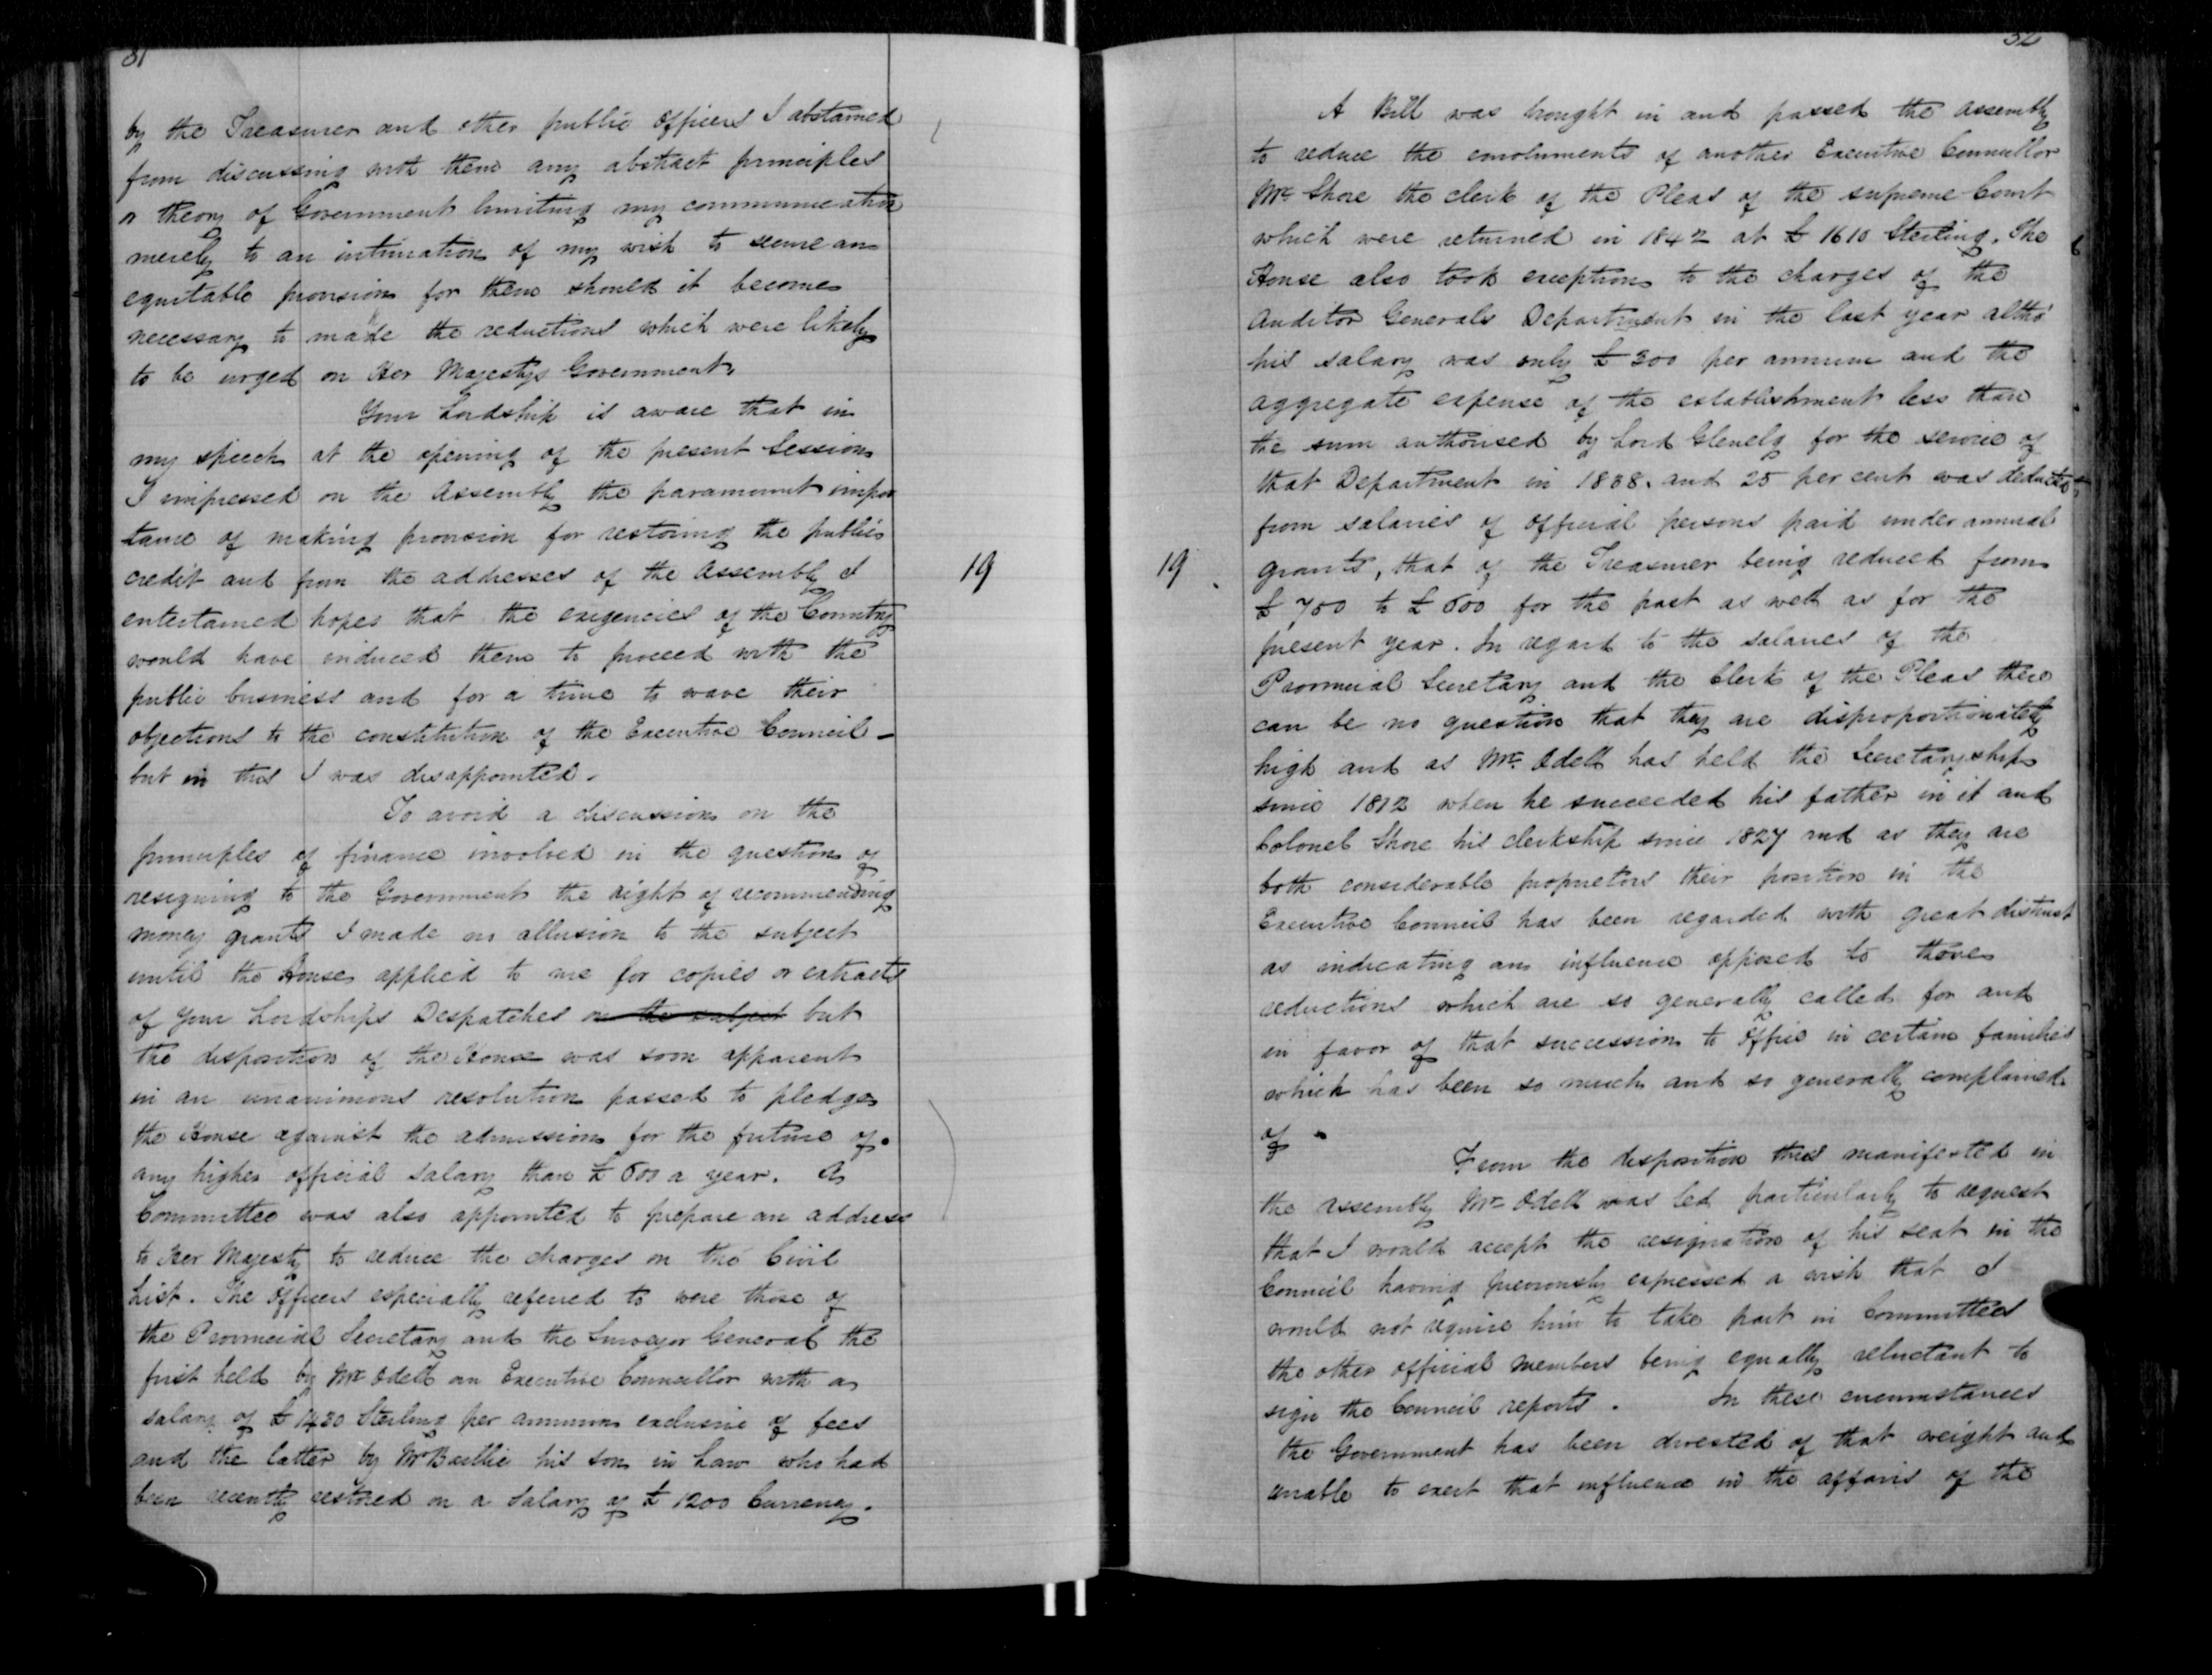 31
by the Treasurer and other public Officers I abstained
from discussing with them any abstract principles
or theory of Government limiting my communication
merely to an intimation of my wish to secure an
equitable provision for them should it become
necessary to made the reductions which were likely
to be urged on Her Majestys Government.
Your Lordship is aware that in
my speech at the opening of the present Session
I impressed on the Assembly the paramount impor
tance of making provision for restoring the public
credit and from the addresses of the Assembly I
entertained hopes that the exigencies of the Country
would have induced them to proceed with the
public business and for a time to wave their
objections to the constitution of the Executive Council -
but in this I was disappointed.
To avoid a discussion on the
principles of finance involved in the question of
resigning to the Government the right of recommending
money grants I made no allusion to the subject
until the House applied to me for copies or extracts
of Your Lordships Despatches on the subject but
the disposition of the House was soon apparent
in an unanimous resolution passed to pledge
the House against the admission for the future of
any higher official salary than £600 a year. A
Committee was also appointed to prepare an address
to Her Majesty to reduce the charges on the Civil
List. The Officers especially referred to were those of
the Provincial Secretary and the Surveyor General the
first held by Mr Odell an Executive Councillor with a
salary of £1430 Sterling per annum exclusive of fees
and the latter by Mr Baillie his son in Law who had
been recently restored on a Salary of £1200 Currency.
19
32
A Bill was brought in and passed the Assembly
to reduce the emoluments of another Executive Councillor
Mr Shore the clerk of the Pleas of the supreme Court
which were returned in 1842 at £1610 Sterling. The
House also took exception to the charges of the
Auditor Generals Department in the last year altho'
his salary was only £300 per annum and the
aggregate expense of the establishment less than
the sum authorised by Lord Glenelg for the service of
that Department in 1838. and 25 per cent was deducted
from salaries of official persons paid under annual
19
grants, that of the Treasurer being reduced from
£700 to £600 for the past as well as for the
present year. In regard to the salaries of the
Provincial Secretary and the Clerk of the Pleas there
can be no question that they are disproportionately
high and as Mr. Odell has held the Secretaryship
since 1812 when he succeeded his father in it and
Colonel Shore his clerkship since 1827 and as they are
both considerable proprietors their position in the
Executive Council has been regarded with great distrust
as indicating an influence opposed to those
reductions which are so generally called for and
in favor of that succession to Office in certain families
which has been so much and so generally complained
of
From the disposition thus manifested in
the Assembly Mr Odell was led particularly to request
that I would accept the resignation of his seat in the
Council having previously expressed a wish that I
would not require him to take part in Committees
the other official members being equally reluctant to
sign the Council reports. In these circumstances
the Government has been divested of that weight and
unable to exert that influence in the affairs of the